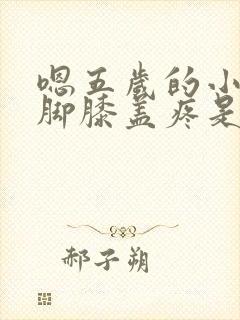 嗯五岁的小
脚膝盖疼是
郝子朔